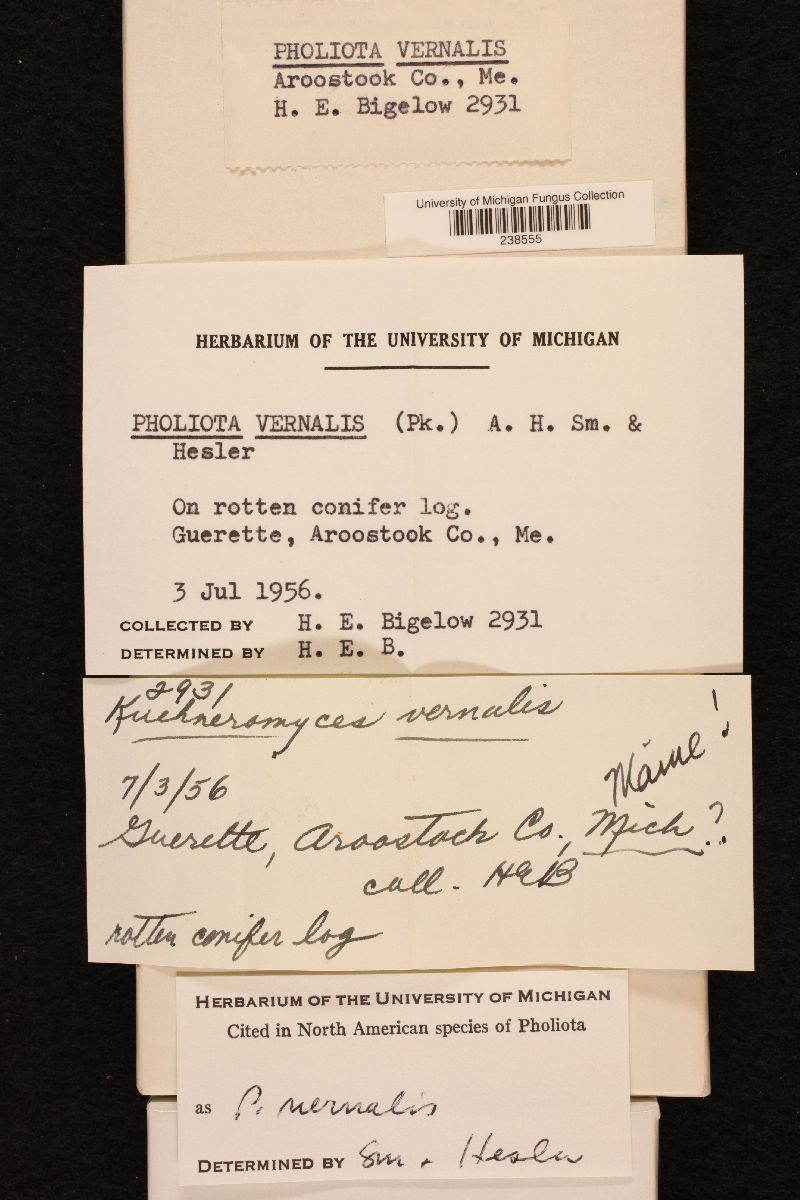 PHOLIOTA VERNALIS
Aroostook Co., Me.
H. E. Bigelow 2931
University of Michigan Fungus Collection
238555
HERBARIUM OF THE UNIVERSITY OF MICHIGAN
PHOLIOTA VERNALIS (Pk.) A. H. Sm. &
Hesler
On rotten conifer log.
Guerette, Aroostook Co., Me.
3 Jul 1956.
COLLECTED BY H. E. Bigelow 2931
DETERMINED BY H. E. B.
2931
Kuehneromyces vernalis
7/3/56
Maine!
Guerette, Aroostook Co., Mich?
coll. HEB
rotten conifer log
HERBARIUM OF THE UNIVERSITY OF MICHIGAN
Cited in North American species of Pholiota
as P. vernalis
DETERMINED BY Sm + Hesler